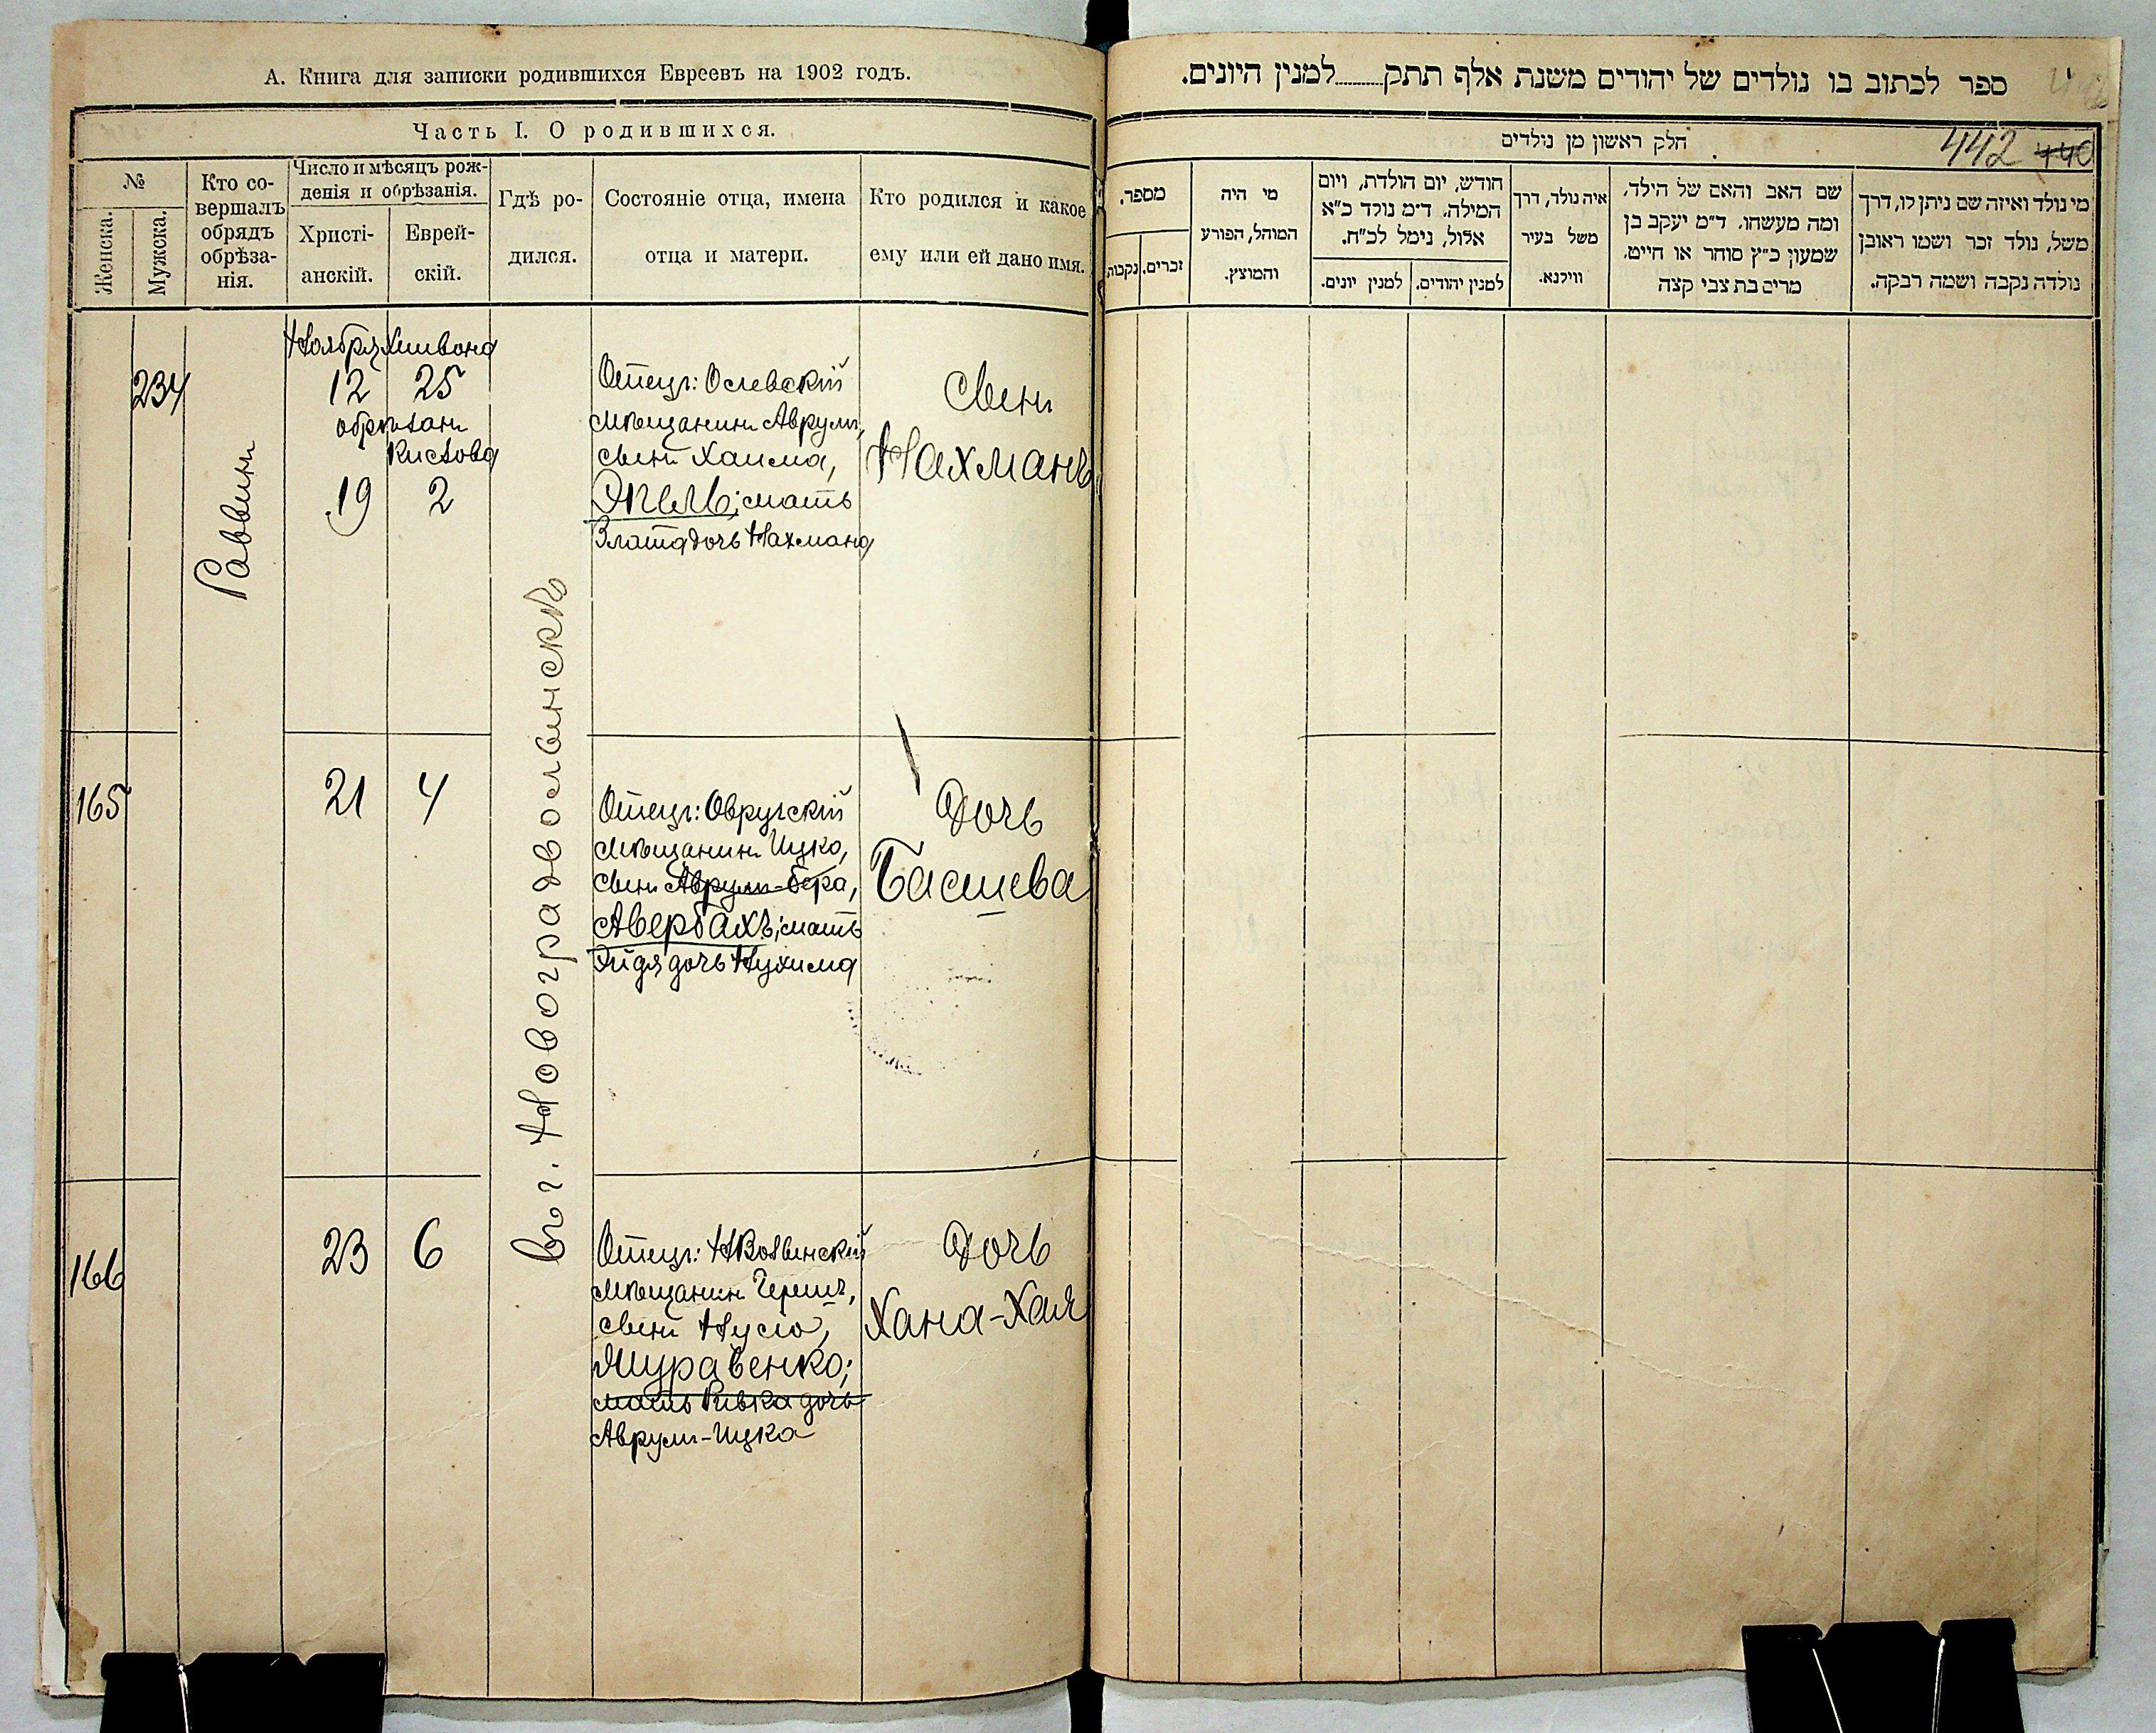 А. Книга для записки родившихся Евреевъ на 1902 годъ.
Часть I. О родившихся.
№
Женска.
Мужска.
Кто со-
вершалъ
обрядъ
обрѣза-
нія.
Число и мѣсяцъ рож-
денія и обрѣзанія.
Христі-
анскій.
Еврей-
скій.
Гдѣ ро-
дился.
Состояніе отца, имена
отца и матери.
Кто родился и какое
ему или ей дано имя.
234
Раввинъ
Ноября Хшвона
12 25
обрѣзанъ
Кислова
19 2
въ г. Новоградволынскѣ
Отецъ: Олевскій
мѣщанинъ Аврумъ,
сынъ Хаима,
мать
Злата дочь Нахмана
Сынъ
Нахманъ
165
21 4
Отецъ: Овручскій
мѣщанинъ Ицко,
сынъ Аврумъ-Бера,
Авербахъ; мать
Эйдя дочь Нухима
Дочь
Басшева
166
23 6
Отецъ: НВолынскій
мѣщанинъ Гершъ,
сынъ Нусю,
Муравенко;
мать Ривка дочь
Аврумъ-Ицка
Дочь
Хана-Хая
ספר לכתוב בו נולדים של יהודים משנת אלף תתק למנין היונים.
חלק ראשון מן נולדים
442 440
מספר.
נקבות
זכרים.
מי היה
המוהל, הפורע
והמוצץ.
חודש, יום הולדת, ויום
המילה. ד״מ נולד כ״א
אלול, נימל לכ״ח.
למנין יונים.
למנין יהודים.
איה נולד, דרך
משל בעיר
ווילנא.
שם האב והאם של הילד.
ומה מעשהו. ד״מ יעקב בן
שמעון כ״ץ סוחר או חייט.
מרים בת צבי קצה
מי נולד ואיזה שם ניתן לו, דרך
משל, נולד זכר ושמו ראובן
נולדה נקבה ושמה רבקה.